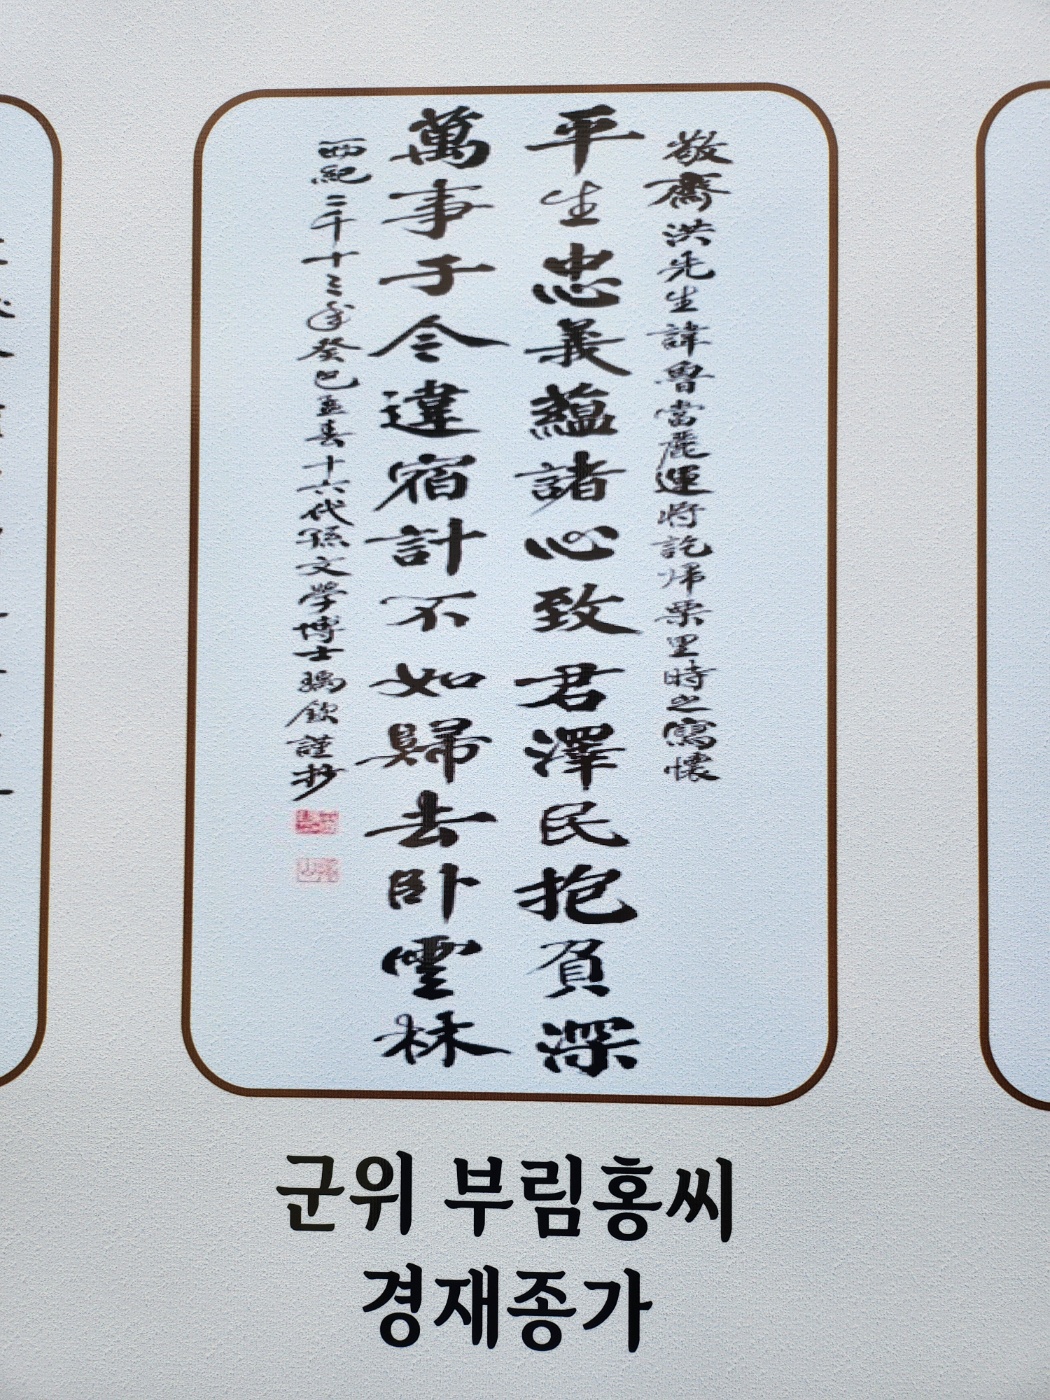 敬齋洪先生諱魯當麗運將訖歸栗里時之寫懷
平生忠義蘊諸心致君澤民抱負深
萬事于今違宿計不如歸去臥雲林
西紀二千十三年癸巳孟春十六代孫文學博士瑀欽謹抄
군위 부림홍씨
경재종가